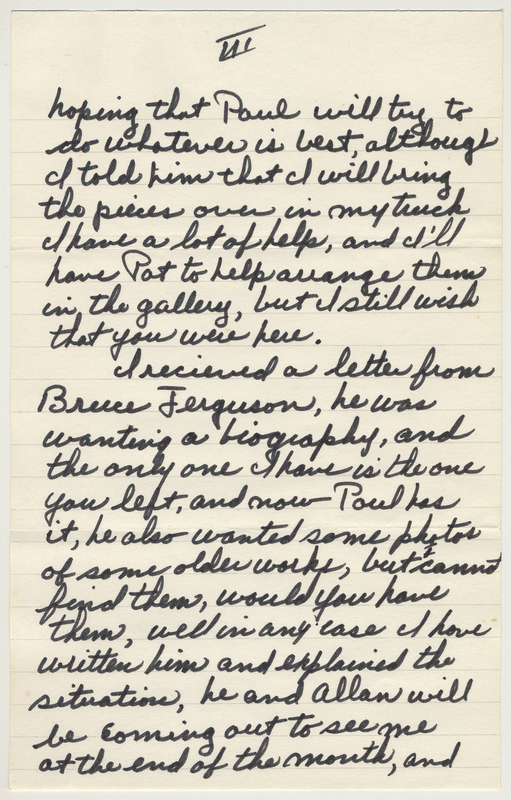 III
hoping that Paul will try to
do whatever is best, although
I told him that I will bring
the pieces over in my truck
I have a lot of help, and I'll
have Pat to help arrange them
in the gallery, but I still wish
that you were here.
I recieved a letter from
Bruce Ferguson, he was
wanting a biography, and
the only one I have is the one
you left, and now Paul has
it, he also wanted some photos
of some older works, but I cannot
find them, would you have
them, well in any case I have
written him and explained the
situation, he and Allan will
be coming out to see me
at the end of the month, and